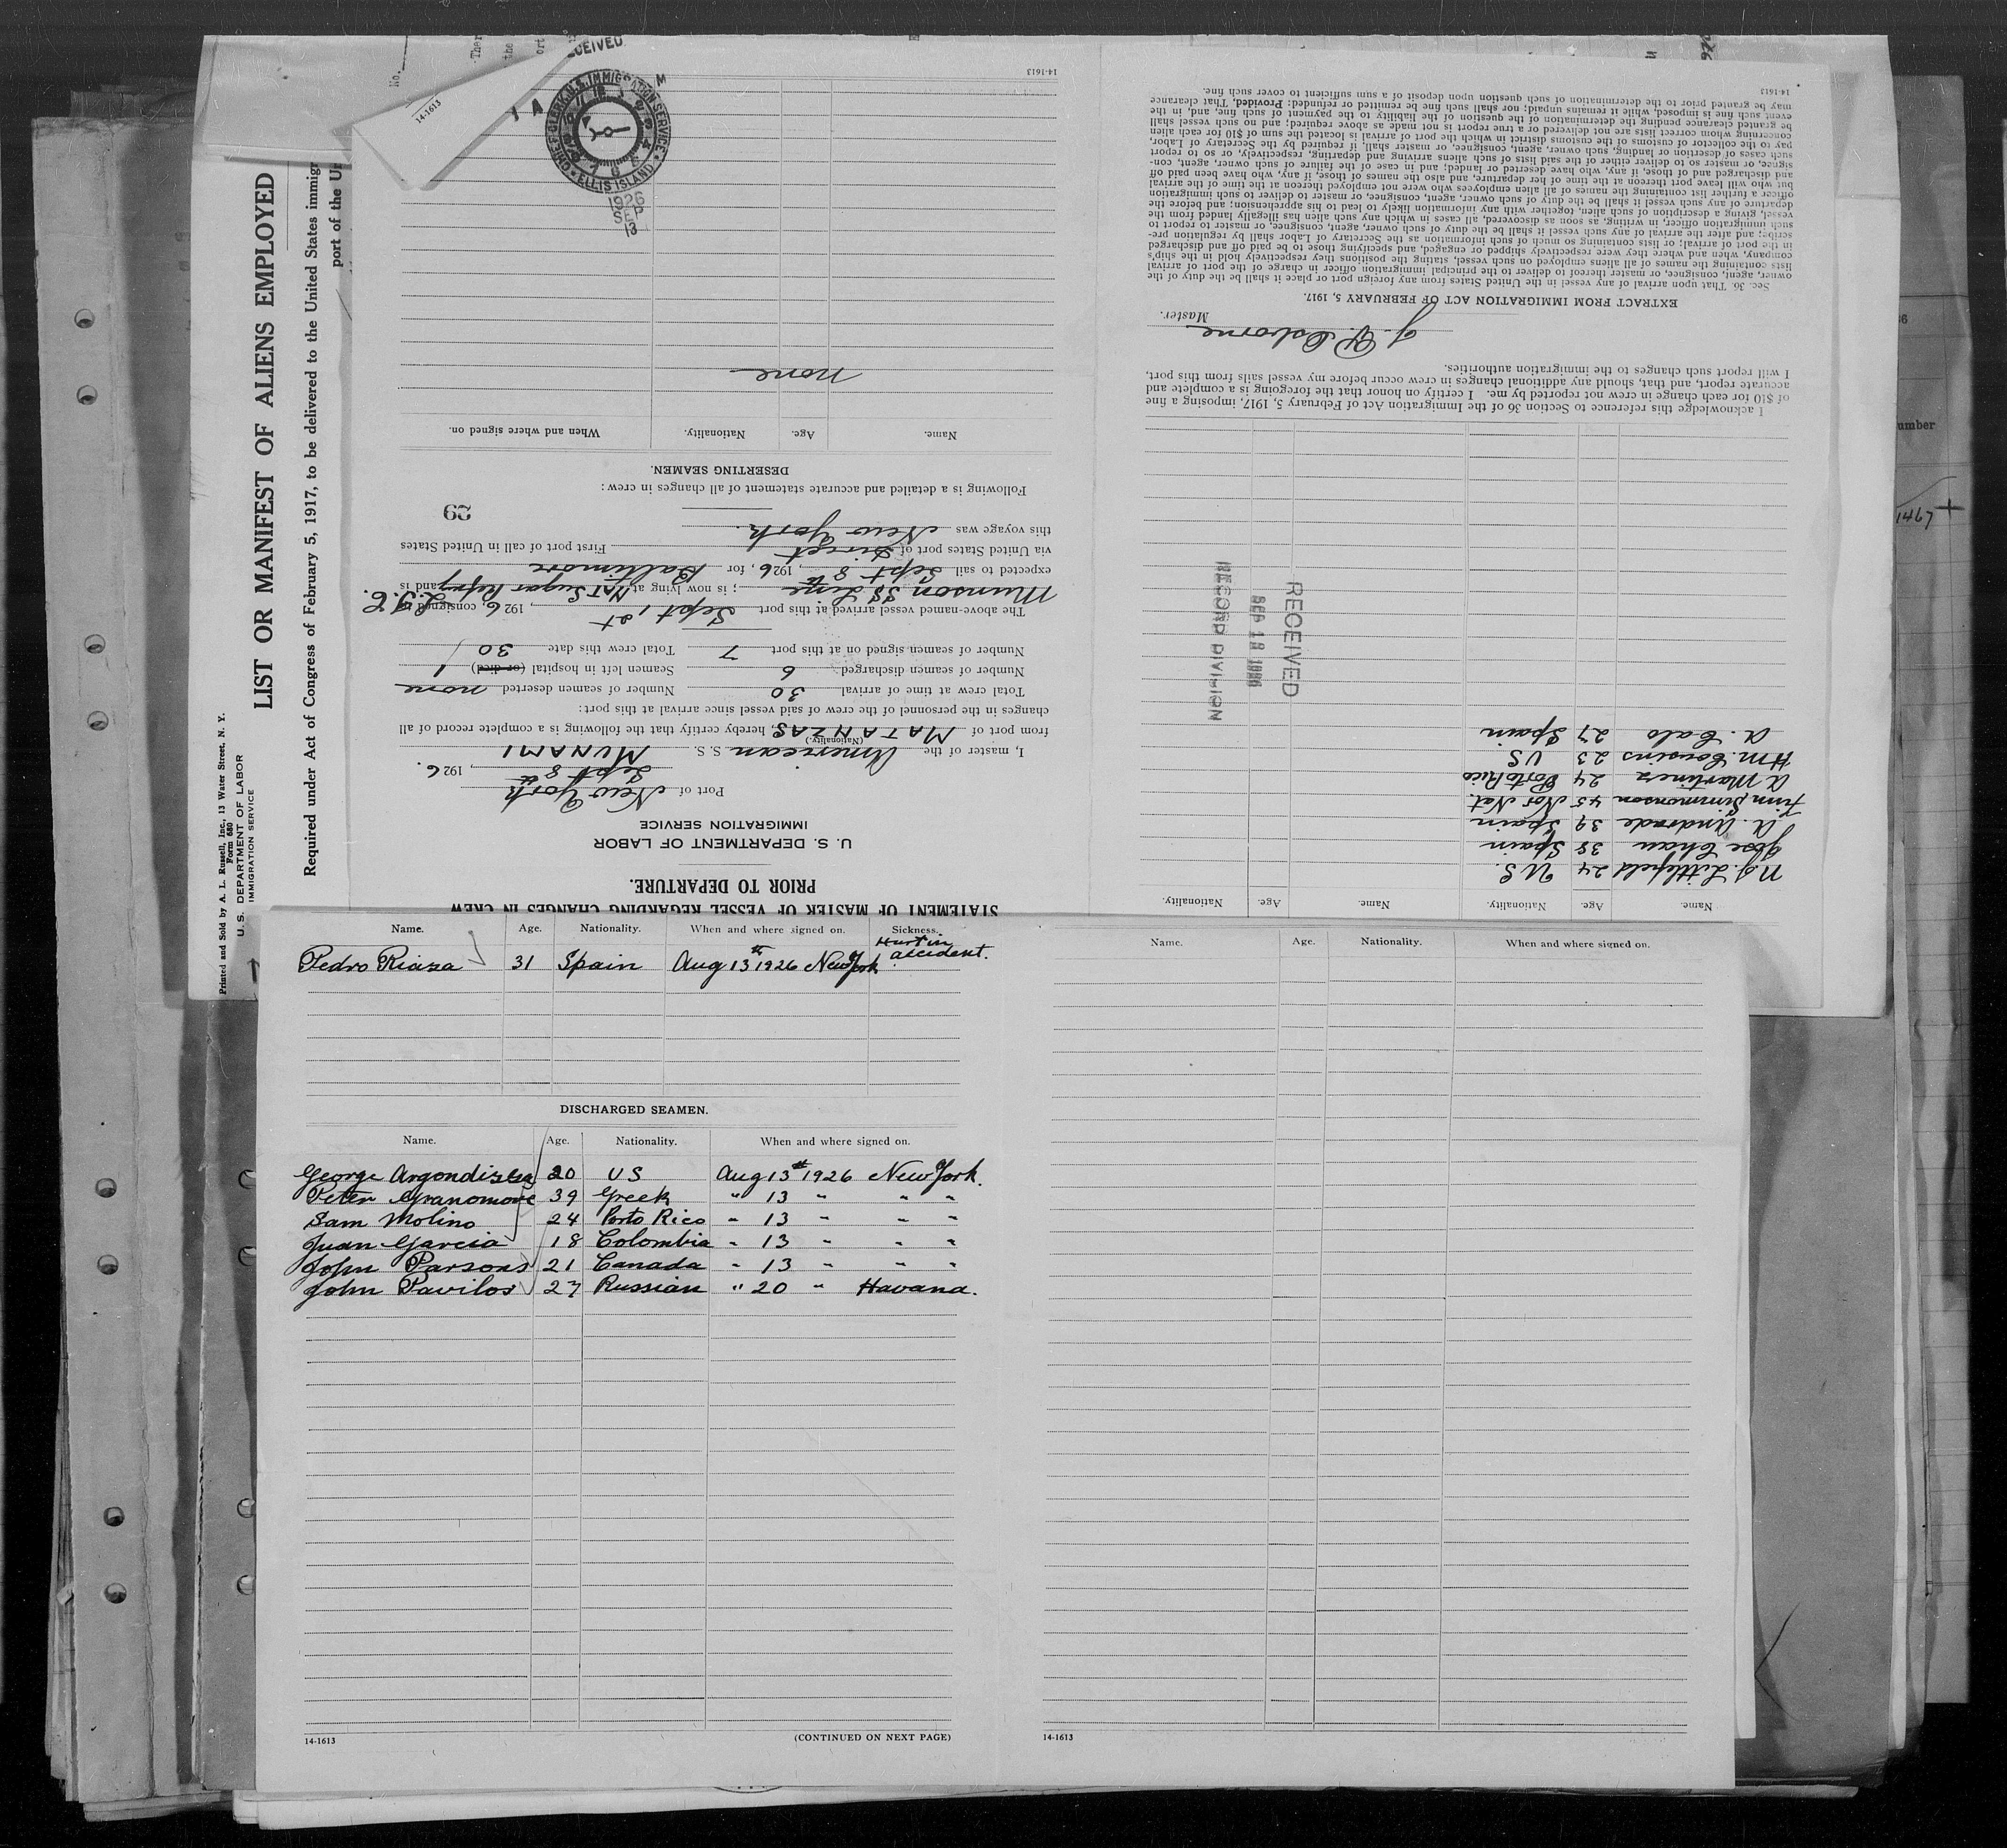 No.
Ther
the
ort
RECEIVED
14-1613
TIME CLERK, U.S. IMMIGRATION SERVICE
ELLIS ISLAND
1926
SEP
13
Printed and Sold by A. L. Russell, Inc., 13 Water Street, N. Y.
Form 680
U.S. DEPARTMENT OF LABOR
IMMIGRATION SERVICE
LIST OR MANIFEST OF ALIENS EMPLOYED
Required under Act of Congress of February 5, 1917, to be delivered to the United States immigr
port of the Un
STATEMENT OF MASTER OF VESSEL REGARDING CHANGES IN CREW
PRIOR TO DEPARTURE.
U. S. DEPARTMENT OF LABOR
IMMIGRATION SERVICE
Port of New York
Sept 8th, 1926.
I, master of the American S. S. MUNAMI
(Nationality.)
from port of MATANZAS, hereby certify that the following is a complete record of all
changes in the personnel of the crew of said vessel since arrival at this port:
Total crew at time of arrival 30 Number of seamen deserted none
Number of seamen discharged 6 Seamen left in hospital (or died) 1
Number of seamen signed on at this port 7 Total crew this date 30
The above-named vessel arrived at this port Sept 1st, 1926, consigned to
Munson SS Line; is now lying at Nat Sugar Refny L.I.C. and is
expected to sail Sept 8th, 1926, for Baltimore
via United States port of Direct First port of call in United States
this voyage was New York.
29
Following is a detailed and accurate statement of all changes in crew:
DESERTING SEAMEN.
Name. Age. Nationality. When and where signed on.
none
14-1613
Name. Age. Nationality. Name. Age. Nationality.
N.J. Littlefield 24 U.S.
Jose Chau 38 Spain
A. Andrade 39 Spain
Finn Simmonson 45 Nor Nat.
A Martinez 24 Porto Rico
H.M. Cousins 23 US
A. Calo 27 Spain
RECEIVED
SEP 18 1926
RECORD DIVISION
I acknowledge this reference to Section 36 of the Immigration Act of February 5, 1917, imposing a fine
of $10 for each change in crew not reported by me. I certify on honor that the foregoing is a complete and
accurate report, and that, should any additional changes in crew occur before my vessel sails from this port,
I will report such changes to the immigration authorities.
Osborne
Master.
EXTRACT FROM IMMIGRATION ACT OF FEBRUARY 5, 1917.
Sec. 36. That upon arrival of any vessel in the United States from any foreign port or place it shall be the duty of the
owner, agent, consignee, or master thereof to deliver to the principal immigration officer in charge of the port of arrival
lists containing the names of all aliens employed on such vessel, stating the positions they respectively hold in the ship's
company, when and where they were respectively shipped or engaged, and specifying those to be paid off and discharged
in the port of arrival; or lists containing so much of such information as the Secretary of Labor shall by regulation pre-
scribe; and after the arrival of any such vessel it shall be the duty of such owner, agent, consignee, or master to report to
such immigration officer, in writing, as soon as discovered, all cases in which any such alien has illegally landed from the
vessel, giving a description of such alien, together with any information likely to lead to his apprehension; and before the
departure of any such vessel it shall be the duty of such owner, agent, consignee, or master to deliver to such immigration
officer a further list containing the names of all alien employees who were not employed thereon at the time of the arrival
but who will leave port thereon at the time of her departure, and also the names of those, if any, who have been paid off
and discharged and of those, if any, who have deserted or landed; and in case of the failure of such owner, agent, con-
signee, or master so to deliver either of the said lists of such aliens arriving and departing, respectively, or so to report
such cases of desertion or landing, such owner, agent, consignee, or master shall, if required by the Secretary of Labor,
pay to the collector of customs of the customs district in which the port of arrival is located the sum of $10 for each alien
concerning whom correct lists are not delivered or a true report is not made as above required; and no such vessel shall
be granted clearance pending the determination of the question of the liability to the payment of such fine, and, in the
event such fine is imposed, while it remains unpaid; nor shall such fine be remitted or refunded: Provided, That clearance
may be granted prior to the determination of such question upon deposit of a sum sufficient to cover such fine.
14-1613
umber
Name. Age. Nationality. When and where signed on. Sickness.
Pedro Riaza 31 Spain Aug 13th 1926 New York Hurt in accident.
DISCHARGED SEAMEN.
Name. Age. Nationality. When and where signed on.
George 20 US Aug 13th 1926 New York.
Peter Granomove 39 Greek " 13 " " "
Sam Molino 24 Porto Rico " 13 " " "
Juan Garcia 18 Colombia " 13 " " "
John Parsons 21 Canada " 13 " " "
John Pavilos 27 Russian " 20 " Havana.
14-1613 (CONTINUED ON NEXT PAGE)
Name. Age. Nationality. When and where signed on.
14-1613